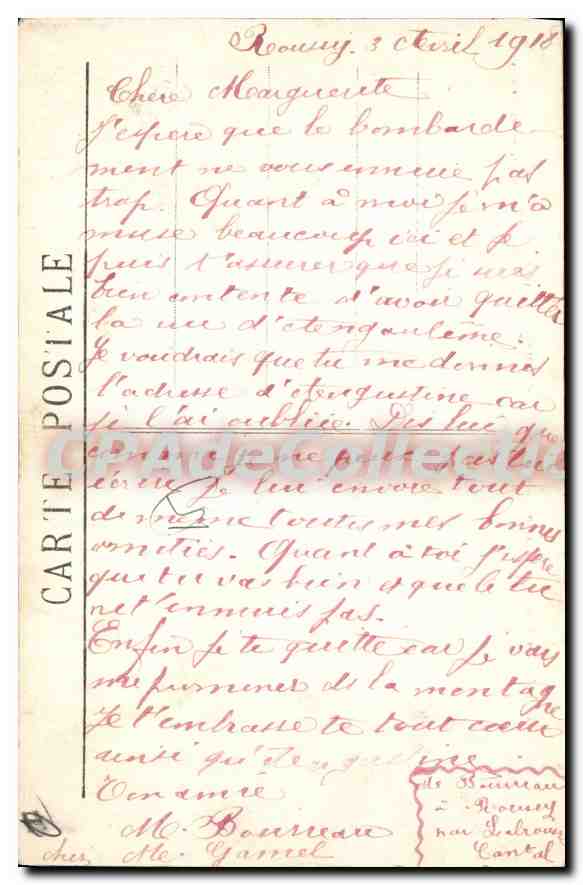 Roussy. 3 Avril 1918
Chère Marguerite
J'espere que le bombarde-
ment ne vous ennuie pas
trop. Quant à moi je m'a
muse beaucoup ici et je
puis t'assurer que je suis
bien contente d'avoir quitter
la rue d'Angoulême.
Je voudrais que tu me donnes
l'adresse d'Augustine car
je l'ai oubliée. Dis lui que
comme je ne peux pas lui
écrire je lui envoie tout
de meme toutes mes bonnes
amitiés. Quant à toi j'espere
que tu vas bien et que le tu
ne t'ennuis pas.
Enfin je te quitte car je vais
me promener ds la montagne
Je t'embrasse de tout coeur
ainsi qu'Augustine
Ton amie
M. Bourreau
chez Me. Gamel
de Bourreau
à Roussy
par Labrousse
Cantal
CARTE POSTALE
CPAdeCollection